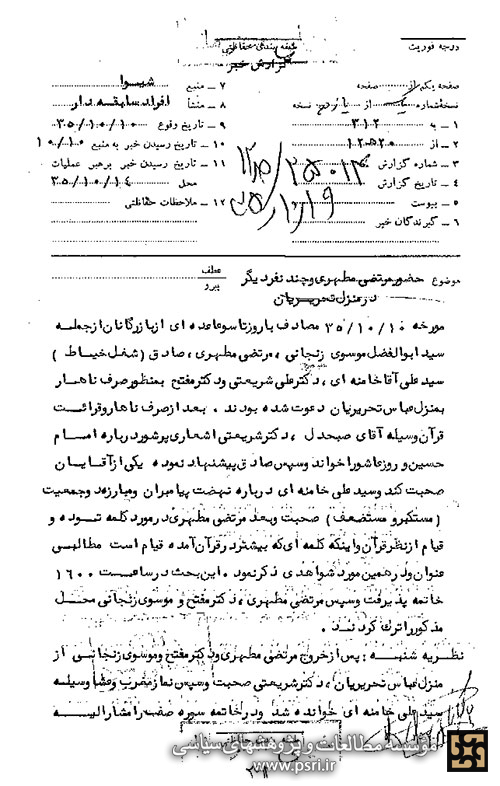 درجه فوریت
طبقه بندی حفاظتی
گزارش خبر
صفحه یکم از صفحه
نسخه شماره یک از نسخه
۱ ــ به ۳۱۲
۲ ــ از ۱۲۰۵۲۰
۳ ــ شماره گزارش
۴ ــ تاریخ گزارش
۵ ــ پیوست
۶ ــ گیرندگان خبر
۷ ــ منبع
۸ ــ منشأ افراد سابقه دار
۹ ــ تاریخ وقوع ۳۵/۱۰/۱۰
۱۰ ــ تاریخ رسیدن خبر به منبع ۱۰/۱۰
۱۱ ــ تاریخ رسیدن خبر برهبر عملیات
محل ۳۵/۱۰/۱۴
۱۲ ــ ملاحظات حفاظتی
موضوع حضور مرتضی مطهری و چند نفر دیگر
در منزل تحریریان
عطف
پیرو
مورخه ۳۵/۱۰/۱۰ مصادف با روز تاسوعا عده ای از بازرگانان از جمله
سید ابوالفضل موسوی زنجانی ، مرتضی مطهری ، صادق ( شغل خیاط )
سید علی آقا خامنه ای ، دکتر علی شریعتی و دکتر مفتح بمنظور صرف ناهار
بمنزل عباس تحریریان دعوت شده بودند . بعد از صرف ناهار و قرائت
قرآن وسیله آقای صبحدل ، دکتر شریعتی اشعاری پرشور درباره امام
حسین و روز عاشورا خواند و سپس صادق پیشنهاد نموده یکی از آقایان
صحبت کند و سید علی خامنه ای درباره نهضت پیامبران و مبارزه دو جمعیت
( مستکبر و مستضعف ) صحبت و بعد مرتضی مطهری در مورد کلمه توده و
قیام از نظر قرآن و اینکه کلمه ای که بیشتر در قرآن آمده قیام است مطالبی
عنوان و در همین مورد شواهدی ذکر نمود . این بحث در ساعت ۱۶۰۰
خاتمه پذیرفت و سپس مرتضی مطهری ، دکتر مفتح و موسوی زنجانی محل
مذکور را ترک کردند .
نظریه شنبه : پس از خروج مرتضی مطهری و دکتر مفتح و موسوی زنجانی از
منزل عباس تحریریان ، دکتر شریعتی صحبت و سپس نماز مغرب و عشا وسیله
سید علی خامنه ای خوانده شد و در خاتمه سوره صف را مشارالیه
موسسه مطالعات و پژوهشهای سیاسی
www.psri.ir